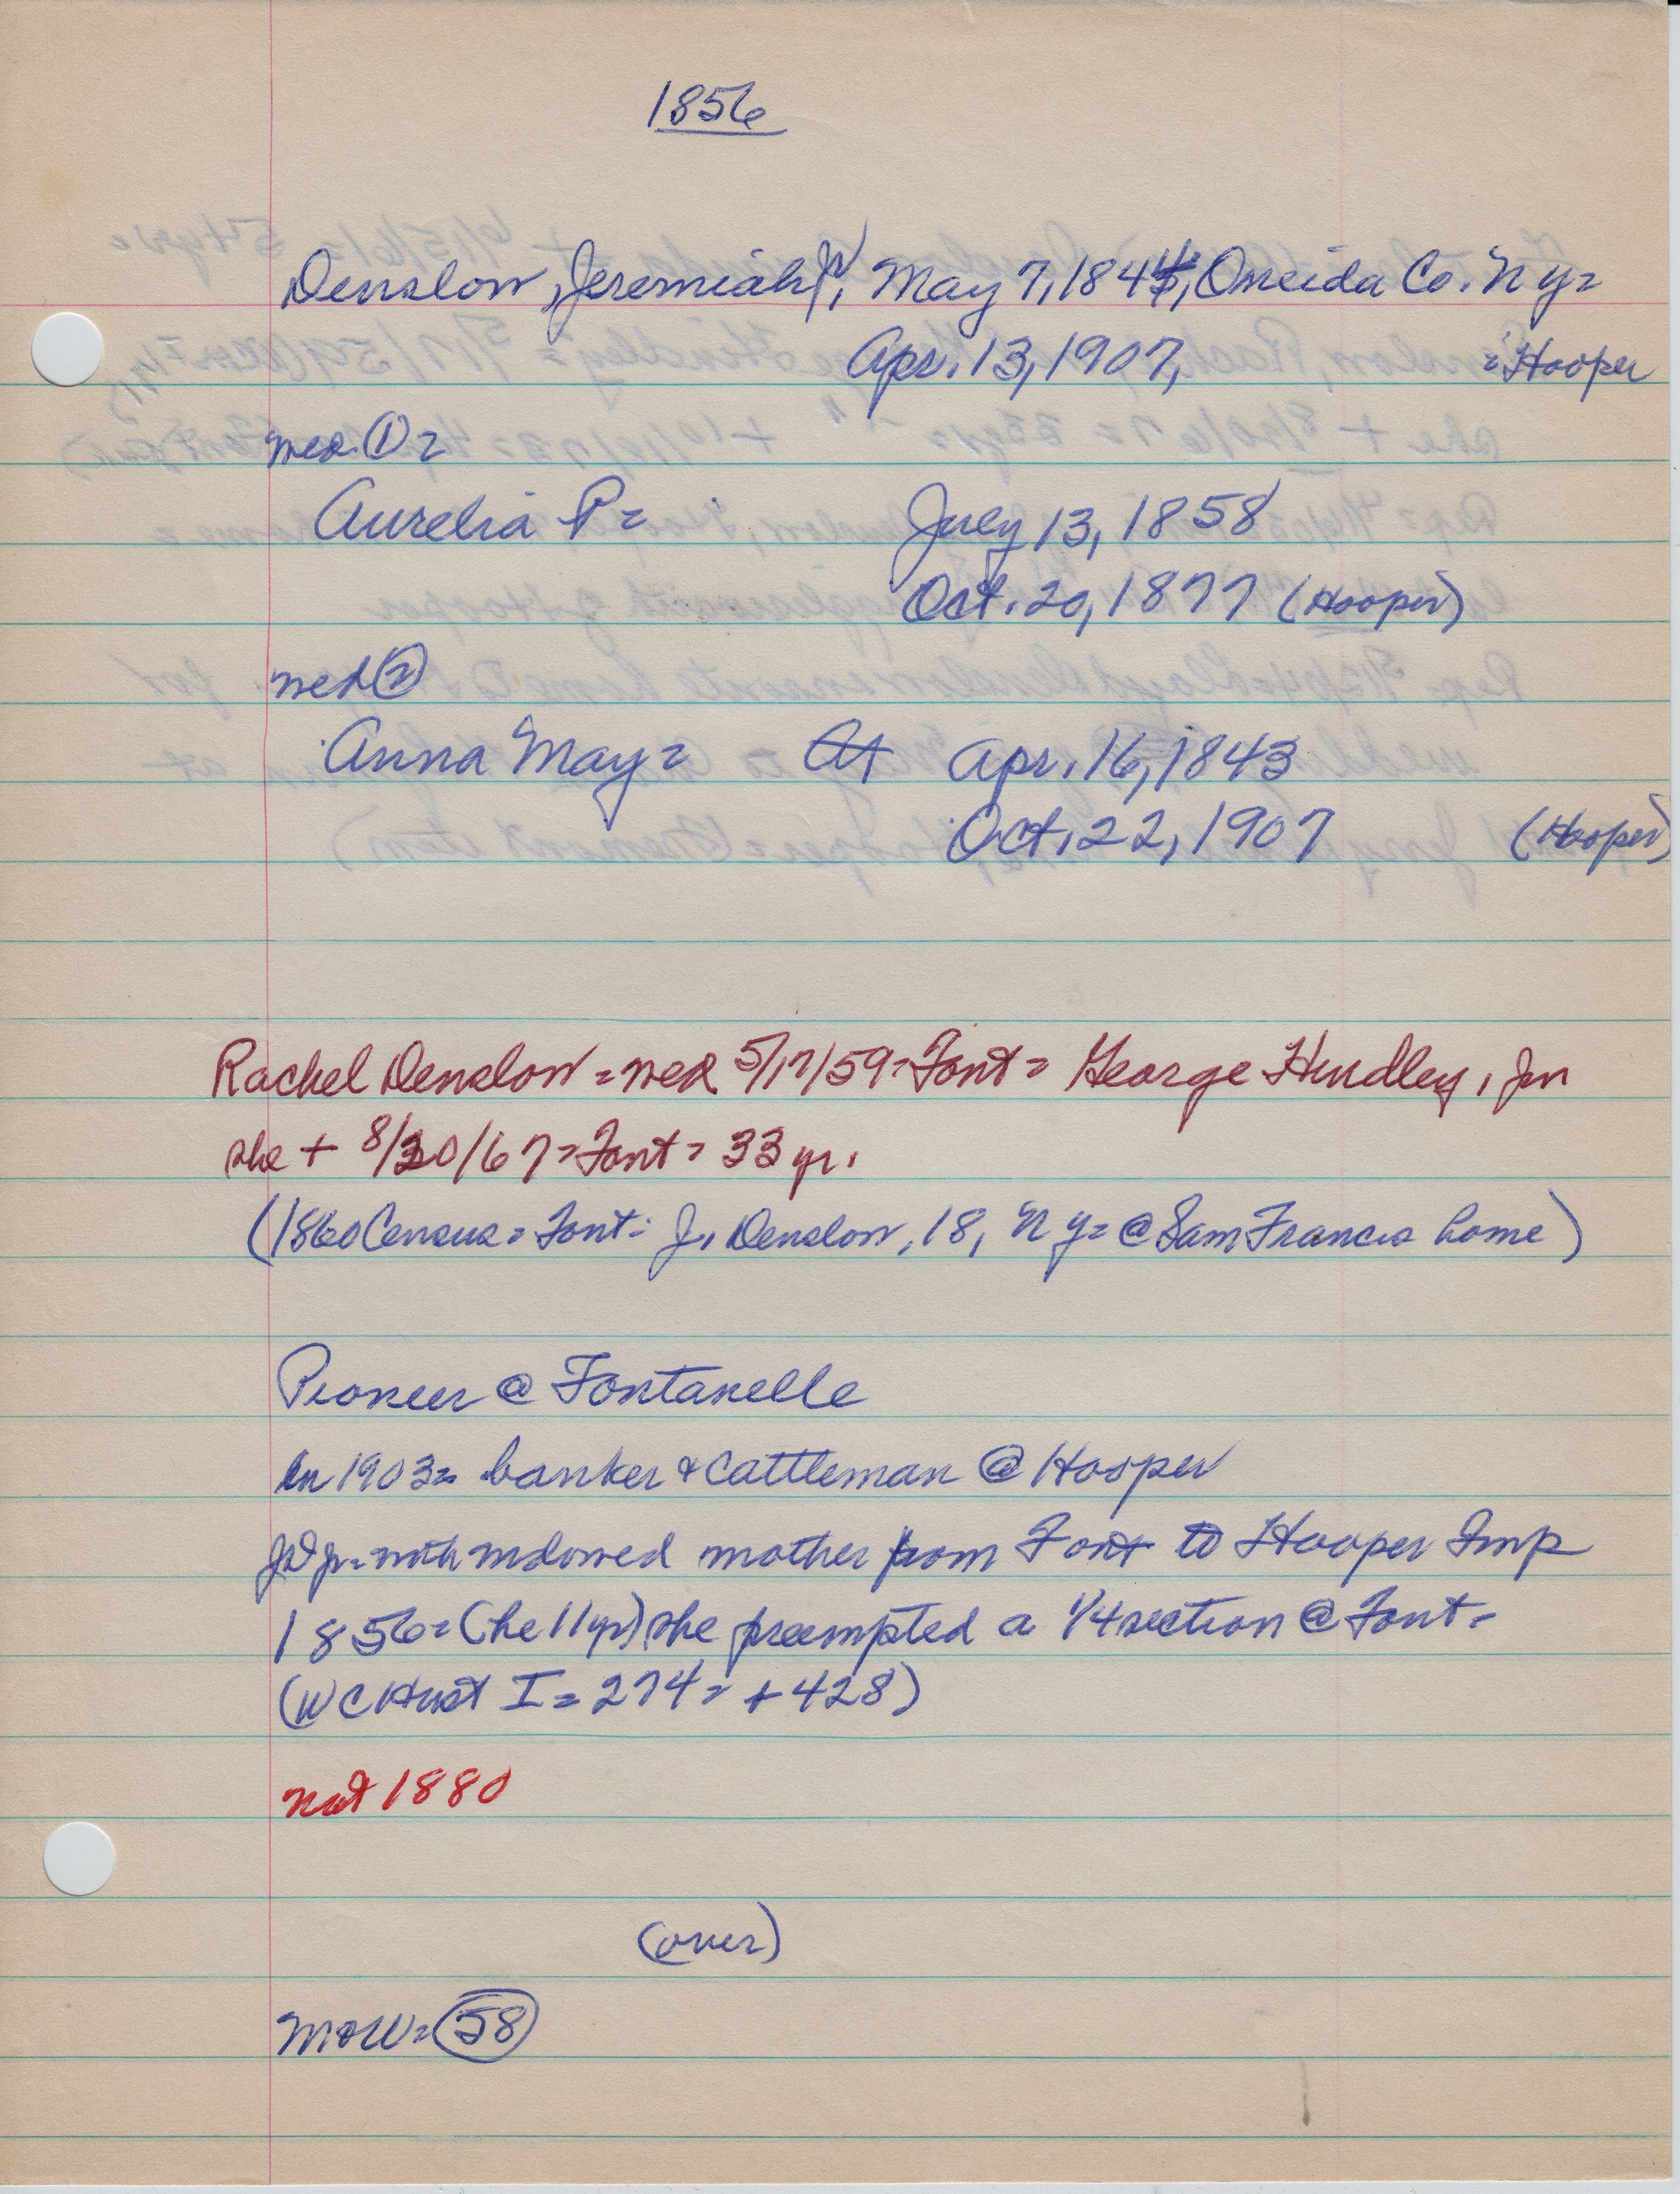 1856
Denslow, Jeremiah, May 7, 1844, Oneida Co. N y=
Apr. 13, 1907, =Hooper
wed ①=
Aurelia P= July 13, 1858
Oct. 20, 1877 (Hooper)
wed ②
Anna May= At Apr. 16, 1843
Oct. 22, 1907 (Hooper)
Rachel Denslow = wed 5/17/59=Font= George Hindley, Jn
she + 8/30/67=Font= 33 yr.
(1860 Census= Font= J. Denslow, 18, N y= @ Sam Francis home)
Pioneer @ Fontanelle
In 1903= banker & cattleman @ Hooper
JD jr=with widowed mother from Font to Hooper Twp
1856=(he 11yr) she preempted a 1/4 section @ Font=
(WC Hist I=274= +428)
not 1880
(over)
MOW=58